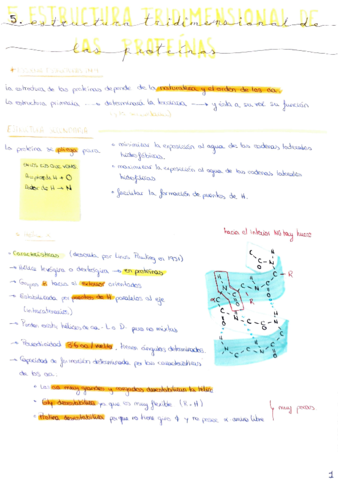 5. ESTRUCTURA TRIDIMENSIONAL DE
5. estructura tridimensional de
LAS PROTEÍNAS
las proteínas
La estructura de las proteínas depende de la naturaleza y el orden de los aa.
La estructura primaria → determina la terciaria → y ésta a su vez su función
ESTRUCTURA SECUNDARIA
La proteína se pliega para:
• minimizar la exposición al agua de las cadenas laterales
hidrofóbicas.
• maximizar la exposición al agua de las cadenas laterales
hidrofílicas.
• facilitar la formación de puentes de H.
→ O
→ N
hacia el interior NO hay hueco
• Características (descrita por Linus Pauling en 1951)
→ Hélice levógira o dextrógira → en proteínas
→ Grupos R hacia el exterior orientados
→ Estabilizada por puentes de H paralelos al eje
→ Pueden existir hélices de aa - L o D, pero no mixtas
→ Periodicidad 3,6 aa/vuelta, tienen ángulos determinados.
→ Capacidad de formación determinada por las características
de los aa:
• Los aa muy grandes y cargados desestabilizan la hélice
• Gly desestabiliza ya que es muy flexible (R=H)
• Prolina desestabiliza porque no tiene giro ϕ y no posee
muy pocos
1